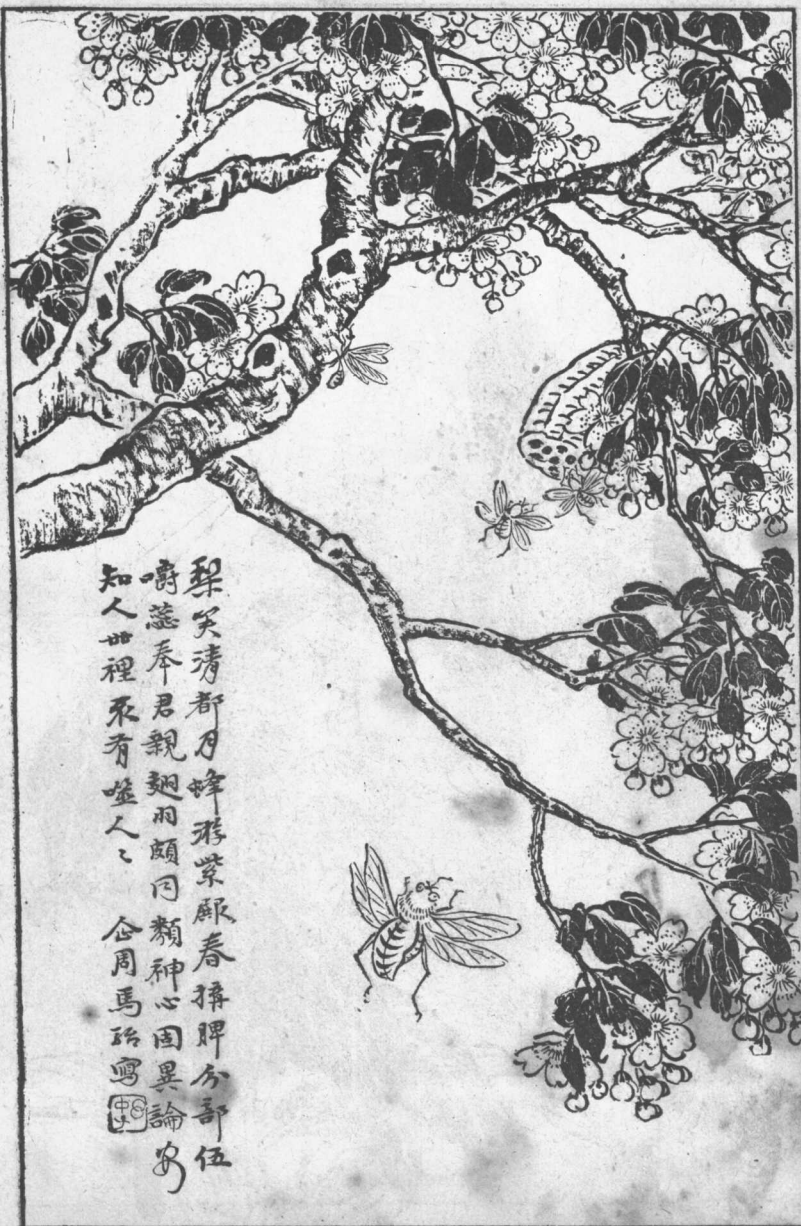 梨笑清都月蜂游紫殿春搆脾分部伍
嚼蕊奉君親翅羽頗同類神心固異論安
知人世裡不有噬人人 企周馬駘寫